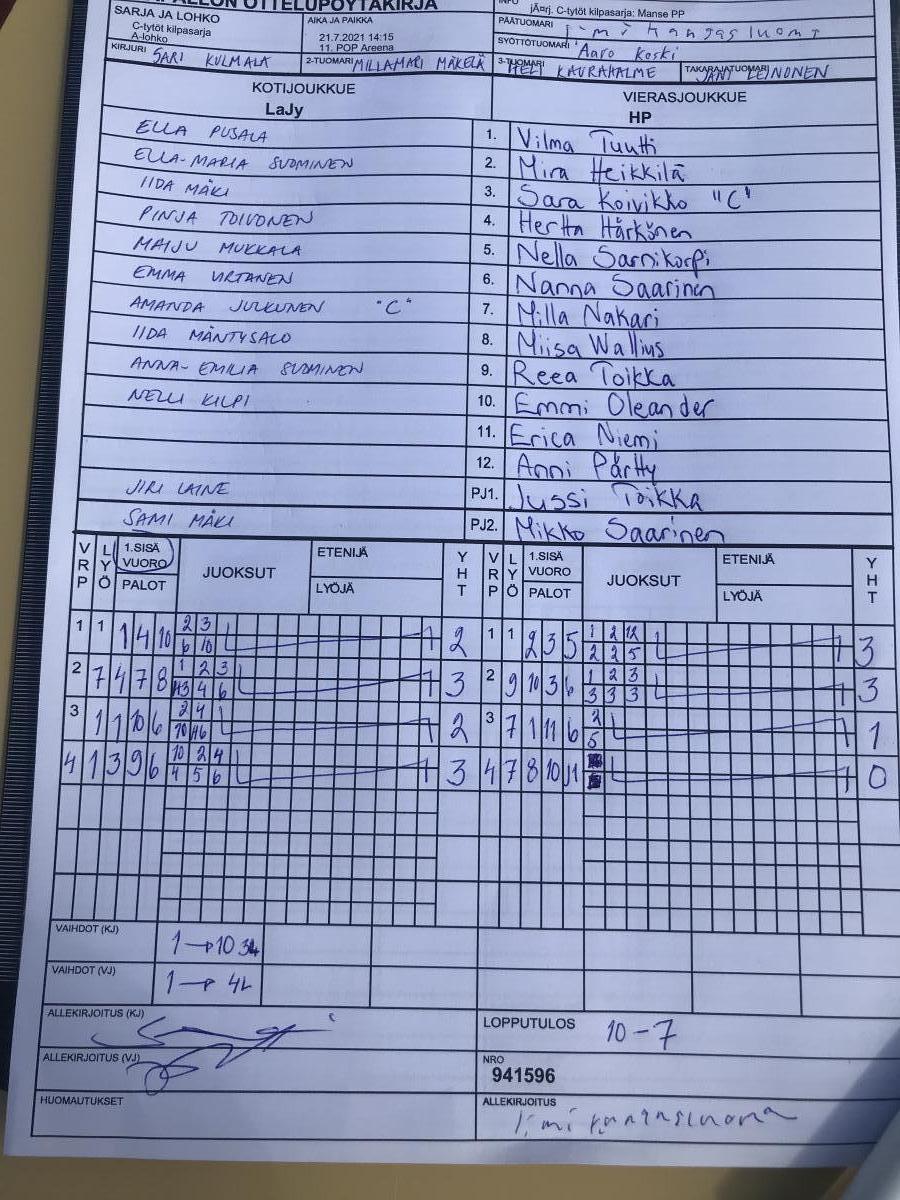 OTTELUPÖYTÄKIRJA
INFO
jÃ¤rj. C-tytöt kilpasarja: Manse PP
SARJA JA LOHKO
C-tytöt kilpasarja
A-lohko
AIKA JA PAIKKA
21.7.2021 14:15
11. POP Areena
PÄÄTUOMARI
SYÖTTÖTUOMARI Aaro Koski
KIRJURI SARI KULMALA
2-TUOMARI MILLAMARI MÄKELÄ
3-TUOMARI HELI KAURAHALME
TAKARAJATUOMARI JANI LEINONEN
KOTIJOUKKUE
LaJy
VIERASJOUKKUE
HP
ELLA PUSALA 1. Vilma Tuutti
ELLA-MARIA SUOMINEN 2. Mira Heikkilä
IIDA MÄKI 3. Sara Koivikko "C"
PINJA TOIVONEN 4. Hertta Härkönen
MAIJU MUKKALA 5. Nella Sarnikorpi
EMMA VIRTANEN 6. Nanna Saarinen
AMANDA JULKUNEN "C" 7. Milla Nakari
IIDA MÄNTYSALO 8. Miisa Wallius
ANNA-EMILIA SUOMINEN 9. Reea Toikka
NELLI KILPI 10. Emmi Oleander
11. Erica Niemi
12. Anni Pärtty
JIRI LAINE PJ1. Jussi Toikka
SAMI MÄKI PJ2. Mikko Saarinen
VRP LYÖ 1.SISÄ VUORO PALOT JUOKSUT ETENIJÄ LYÖJÄ YHT VRP LYÖ 1.SISÄ VUORO PALOT JUOKSUT ETENIJÄ LYÖJÄ YHT
1 1 1 4 10 2 3 2 1 1 2 3 5 1 2 12 3
6 10 2 2 5
2 7 4 7 8 1 2 3 3 2 9 10 3 6 1 2 3 3
4 6 3 3 3
3 1 1 10 6 2 4 2 3 7 1 11 6 2 1
10 5
4 1 3 9 6 10 2 4 3 4 7 8 10 11 0
4 5 6
VAIHDOT (KJ) 1→10
VAIHDOT (VJ) 1→4L
ALLEKIRJOITUS (KJ)
LOPPUTULOS 10-7
ALLEKIRJOITUS (VJ)
NRO
941596
HUOMAUTUKSET
ALLEKIRJOITUS